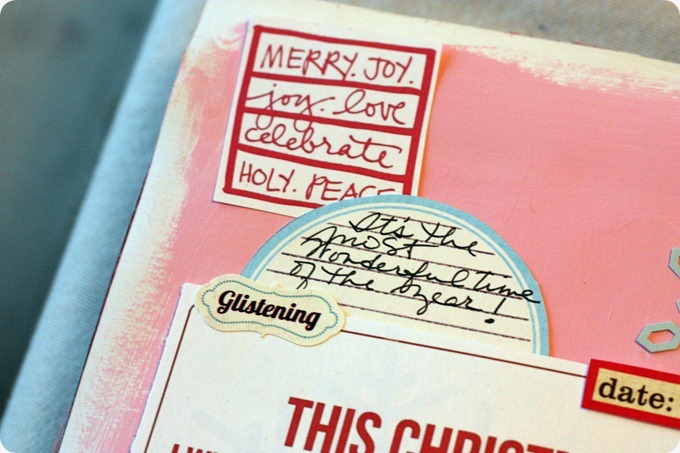 MERRY. JOY.
joy. love
celebrate
HOLY. PEACE
It's the
most
wonderful time
of the year!
Glistening
date:
THIS